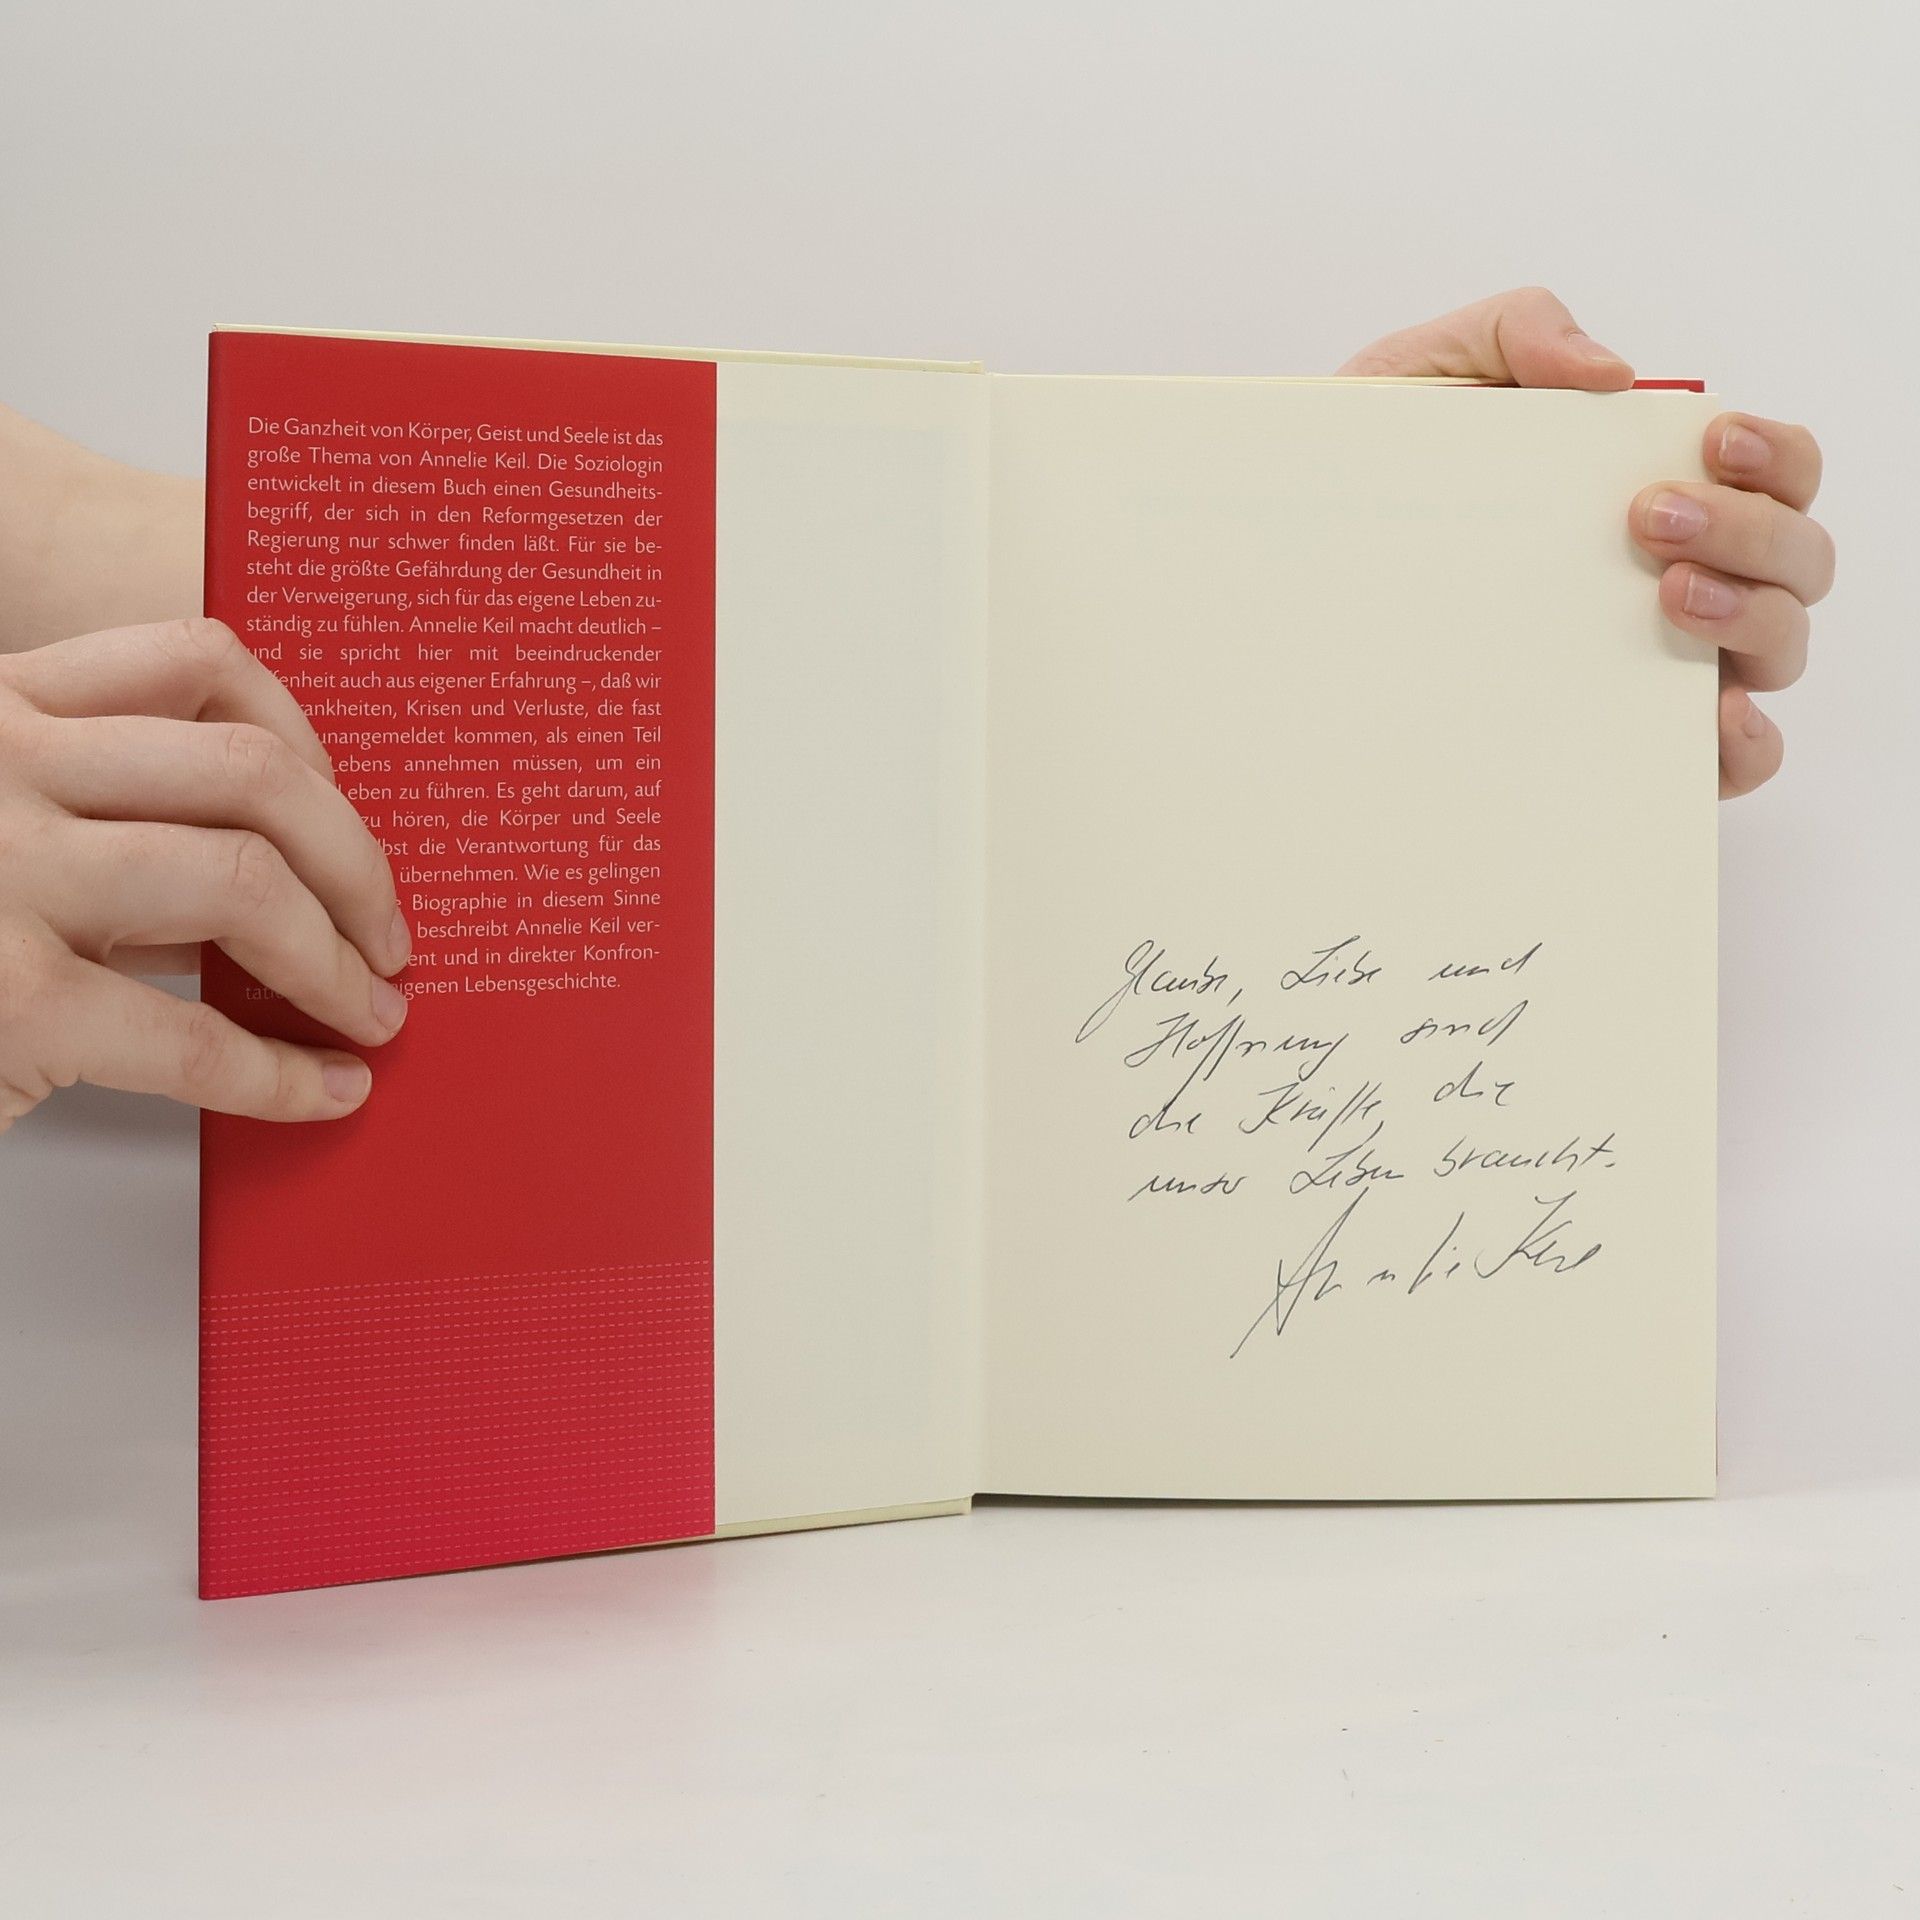 Die Ganzheit von Körper, Geist und Seele ist das
große Thema von Annelie Keil. Die Soziologin
entwickelt in diesem Buch einen Gesundheits-
begriff, der sich in den Reformgesetzen der
Regierung nur schwer finden läßt. Für sie be-
steht die größte Gefährdung der Gesundheit in
der Verweigerung, sich für das eigene Leben zu-
ständig zu fühlen. Annelie Keil macht deutlich –
und sie spricht hier mit beeindruckender
auch aus eigener Erfahrung –, daß wir
Krisen und Verluste, die fast
unangemeldet kommen, als einen Teil
Lebens annehmen müssen, um ein
Leben zu führen. Es geht darum, auf
zu hören, die Körper und Seele
die Verantwortung für das
übernehmen. Wie es gelingen
Biographie in diesem Sinne
beschreibt Annelie Keil ver-
und in direkter Konfron-
eigenen Lebensgeschichte.
Glaube, Liebe und
Hoffnung sind
die Kräfte, die
unser Leben braucht.
Annelie Keil